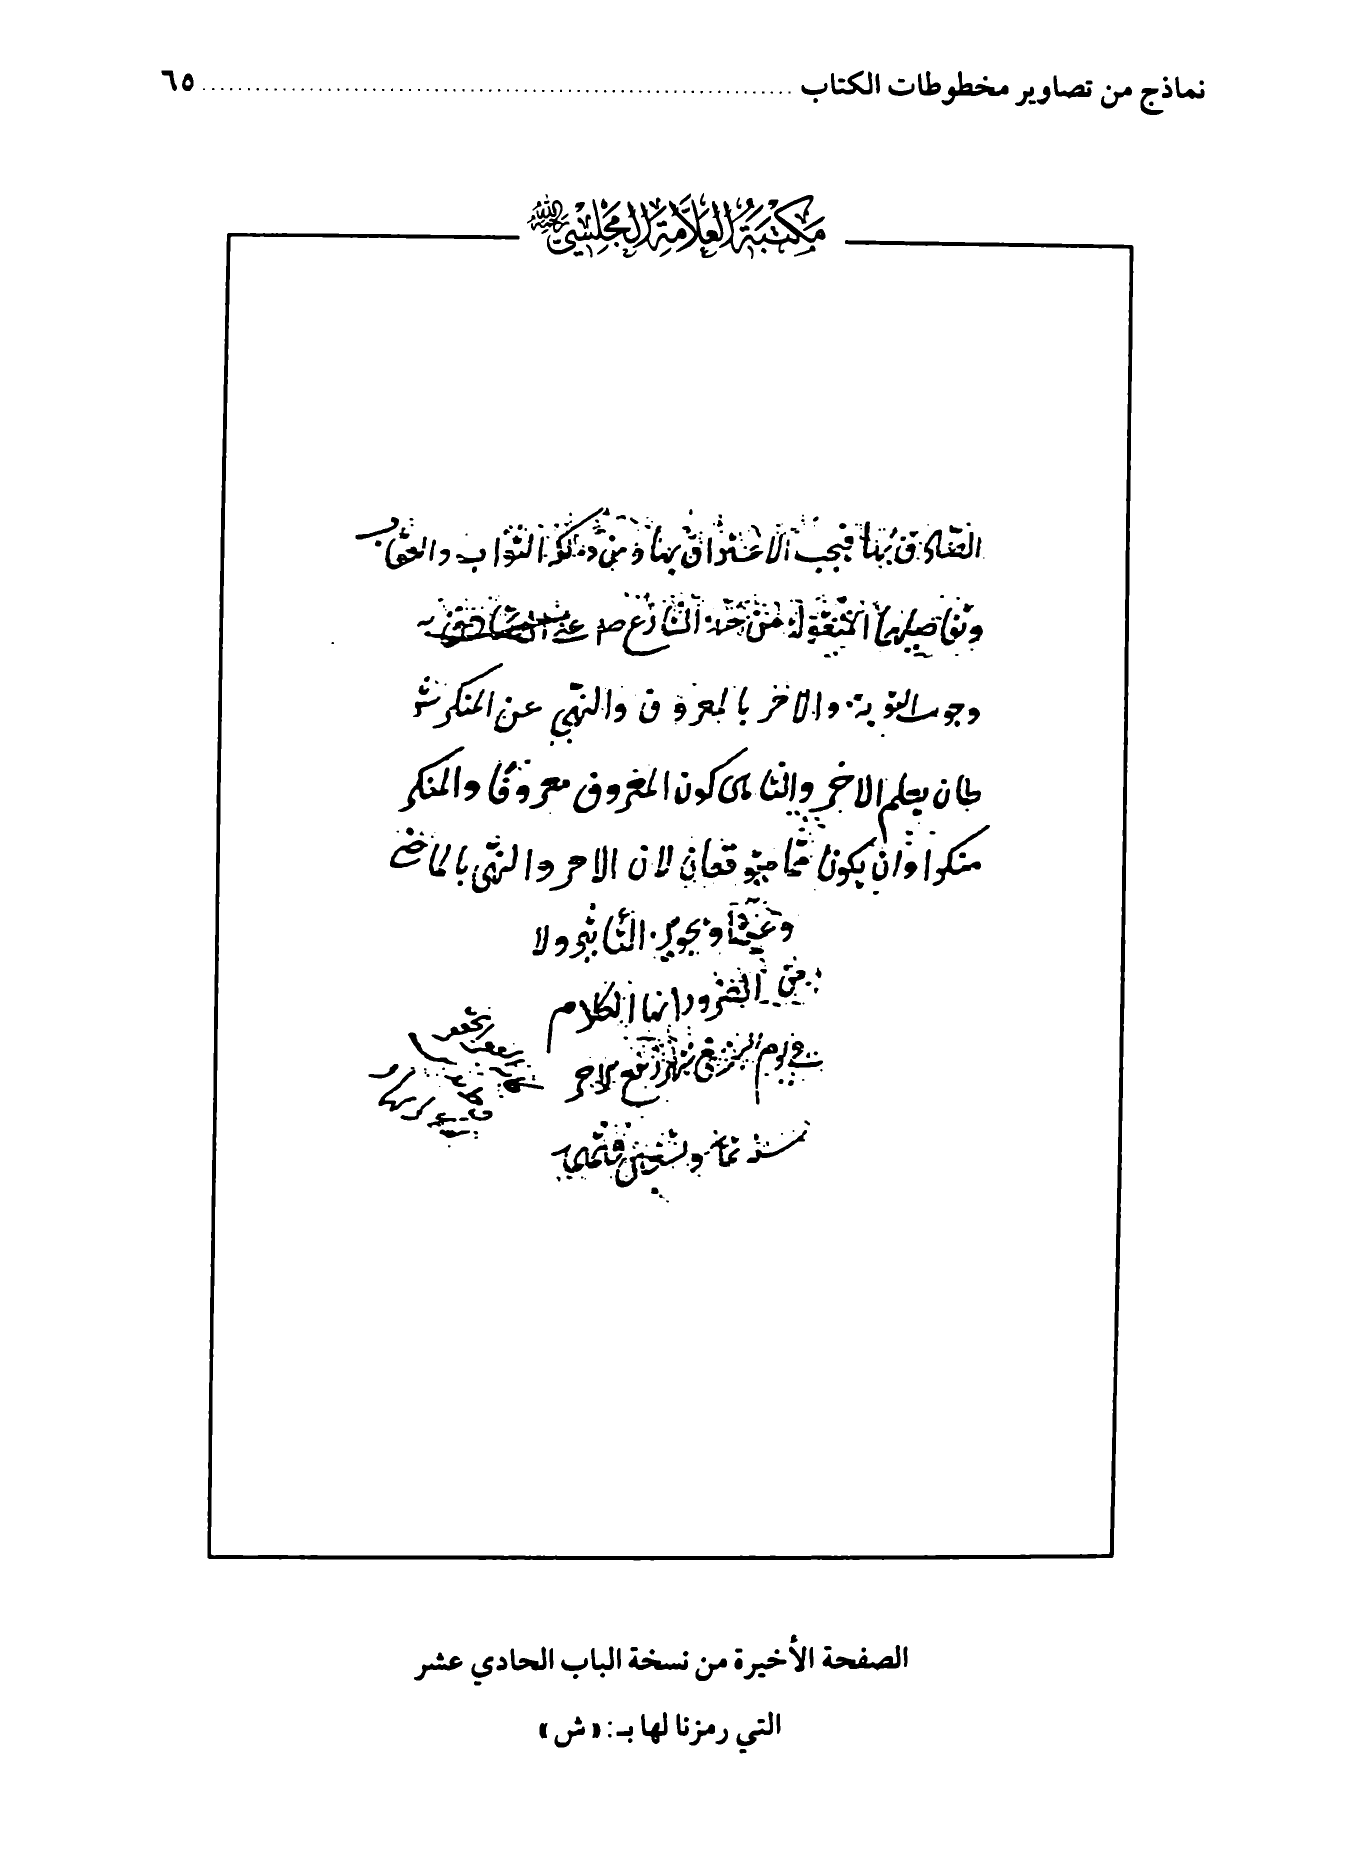 نماذج من تصاوير مخطوطات الكتاب ........ ٦٥
مكتبة العلامة المجلسي رحمه الله
الصادق بها فيجب الاعتراف بها و من ذلك الثواب والعقاب
وتفاصيلهما المنقولة من جهة الشارع ص
وجوب التوبة والامر بالمعروف والنهي عن المنكر بشر
طان يعلم الامر والناهي كون المعروف معروفا والمنكر
منكرا وان يكونا مما سيوقعان لان الامر والنهي بالماضي
وعبثا وتجويز التاثير ولا
من الضرر انها الكلام
في يوم
سنه
الصفحة الأخيرة من نسخة الباب الحادي عشر
التي رمزنا لها بـ: «ش»